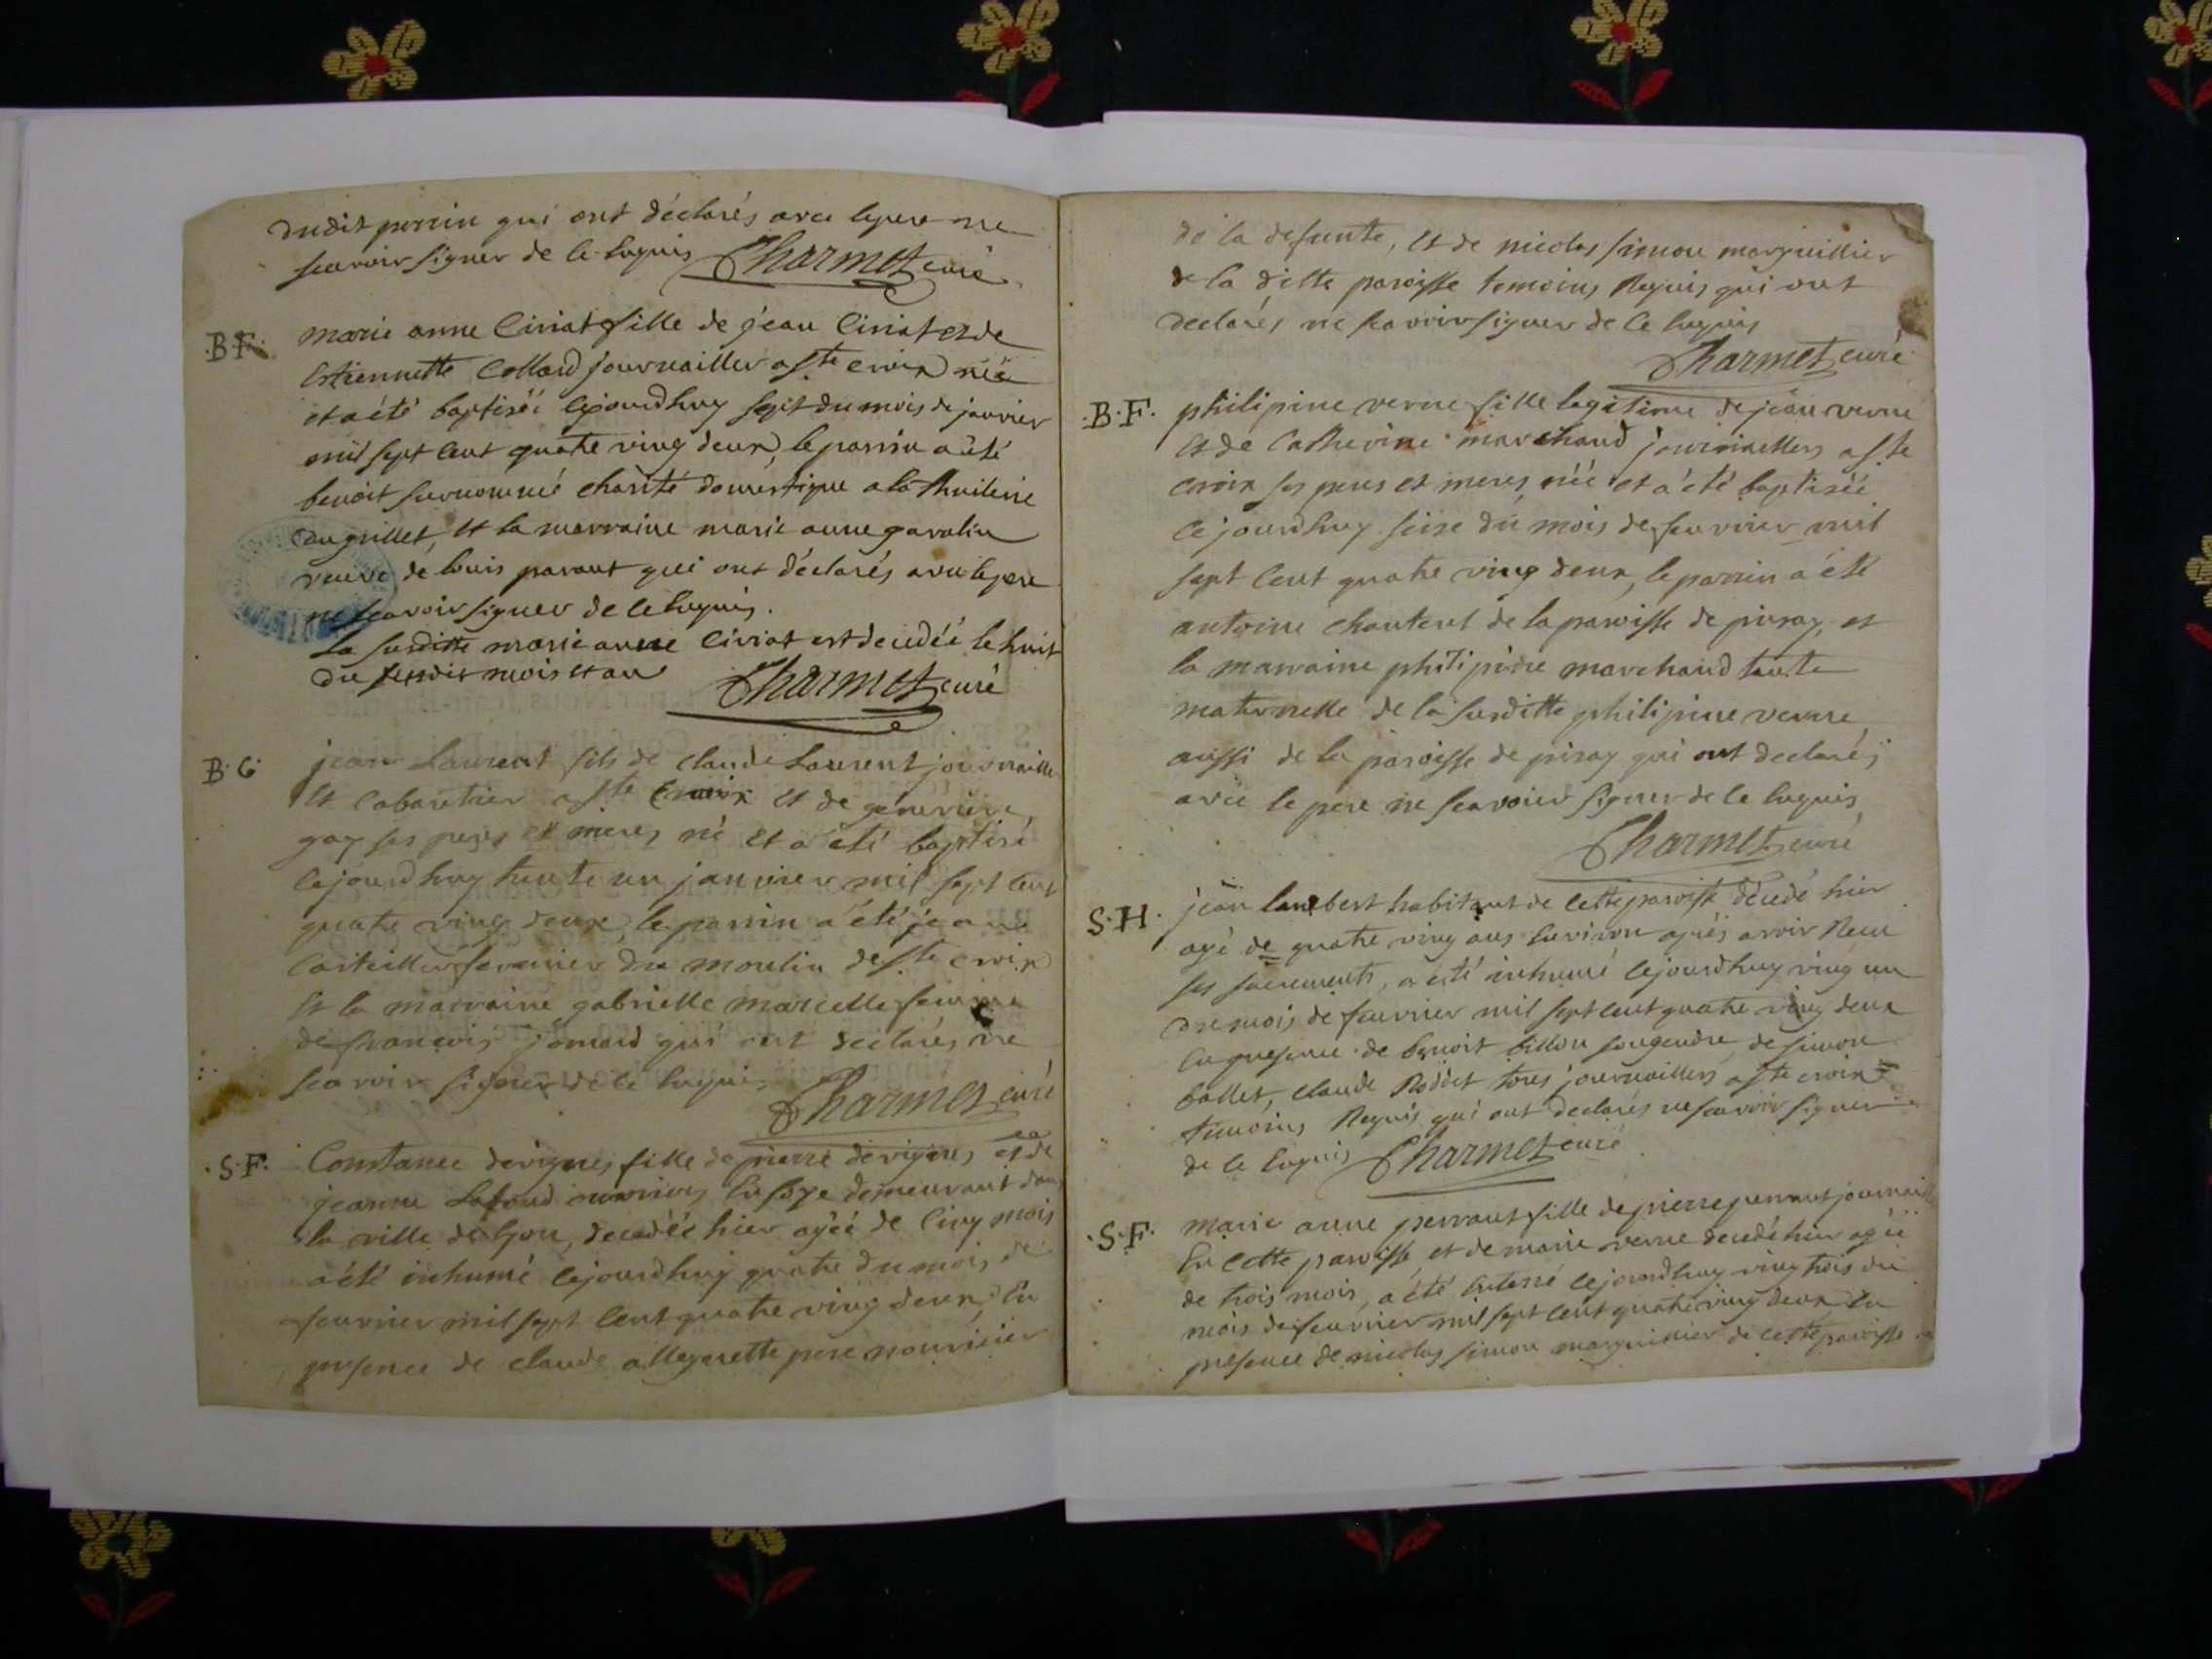 dudit parrin qui ont déclarés avec le pere ne
scavoir signer de ce enquis Charmet curé
B·F· marie anne Ciriat fille de jean Ciriat et de
Estiennette Collard journaillier a Ste croix née
et a été baptiséé cejourdhuy sept du mois de janvier
mil sept cent quatre ving deux, le parrin a été
benoit surnommé charité domestique a la thuilerie
du guillet, et la marraine marie anne gavalin
veuve de louis parant qui ont déclarés avec le pere
ne scavoir signer de ce enquis.
la surditte marie anne Ciriat est decedéé le huit
du susdit mois et an Charmet curé
B·G· jean Laurent fils de claude Laurent journaillier
et Cabaretier a Ste Croix et de genevieve
gay ses peres et meres né et a été baptisé
cejourdhuy trente un janvier mil sept cent
quatre ving deux, le parrin a été jean
fermier du moulin de Ste croix
et la marraine gabrielle marcelle femme
de francois jomard qui ont declarés ne
scavoir signer de ce enquis Charmet curé
·S·F· Constance derignes fille de pierre derignes et de
jeanne Lafond demeurant dans
la ville de lyon, decedéé hier agéé de cinq mois
a été inhumé cejourdhuy quatre du mois de
feuvrier mil sept cent quatre ving deux, en
presence de claude allegrette pere nourricier
de la defunte, et de nicolas simon marguillier
de la ditte paroisse temoins Requis qui ont
declarés ne scavoir signer de ce enquis
Charmet curé
·B·F· philipine verne fille legitime de jean verne
et de Catherine marchand journailliers a Ste
croix ses peres et meres, néé et a été baptiséé
cejourdhuy seise du mois de feuvrier mil
sept cent quatre ving deux, le parrin a été
antoine chanterel de la paroisse de pisay, et
la marraine philipine marchand tante
maternelle de la surditte philipine verne
aussi de la paroisse de pisay qui ont declarés
avec le pere ne scavoir signer de ce enquis
Charmet curé
S·H· jean lambert habitant de cette paroisse décedé hier
agé de quatre ving ans environ après avoir Recu
ses sacrements, a été inhumé cejourdhuy ving un
du mois de feuvrier mil sept cent quatre ving deux
en presence de benoit billon son gendre, de simon
ballet, claude Roddet tous journailliers a Ste croix
temoins Requis qui ont declarés ne scavoir signer
de ce enquis Charmet curé
·S·F· marie anne perraut fille de pierre perraut journaillier
en cette paroisse, et de marie verne decedé hier agéé
de trois mois, a été enterré cejourdhuy ving trois du
mois de feuvrier mil sept cent quatre ving deux en
presence de nicolas simon marguillier de cette paroisse